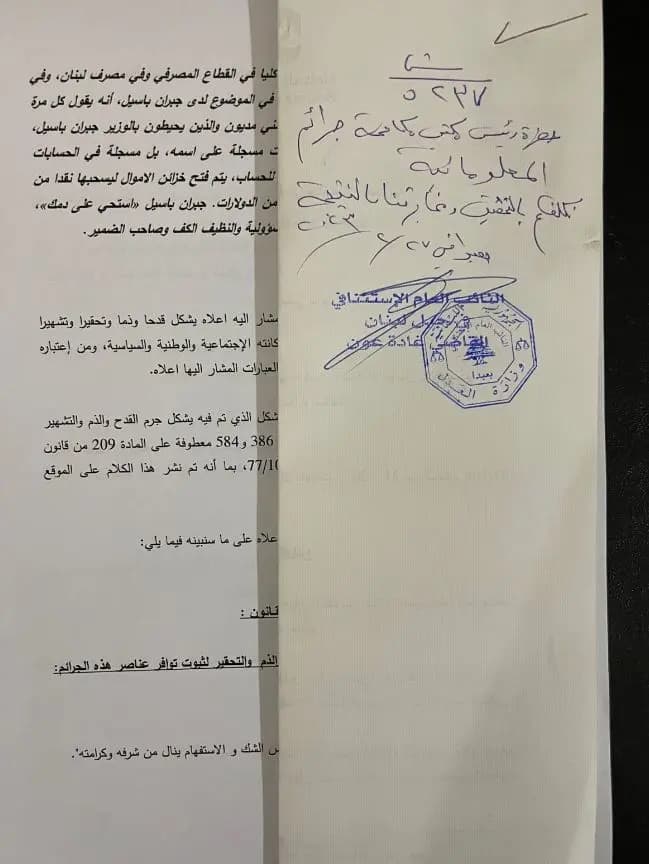 ش
٥٢٣٧
حضرة رئيس مكتب مكافحة جرائم
المعلوماتية
نكلفكم بالتحقيق ومخابرتنا بالنتيجة
بعبدا في ٢٧
النائب العام الإستئنافي
في جبل لبنان
القاضي غادة عون
بعبدا
وزارة العدل
كليا في القطاع المصرفي وفي مصرف لبنان، وفي
في الموضوع لدى جبران باسيل، أنه يقول كل مرة
مديون والذين يحيطون بالوزير جبران باسيل،
مسجلة على اسمه، بل مسجلة في الحسابات
للحساب، يتم فتح خزائن الاموال ليسحبها نقدا من
من الدولارات. جبران باسيل «استحي على دمك»،
والنظيف الكف وصاحب الضمير.
اليه اعلاه يشكل قدحا وذما وتحقيرا وتشهيرا
الإجتماعية والوطنية والسياسية، ومن إعتباره
العبارات المشار اليها اعلاه.
الذي تم فيه يشكل جرم القدح والذم والتشهير
386 و 584 معطوفة على المادة 209 من قانون
بما أنه تم نشر هذا الكلام على الموقع
على ما سنبينه فيما يلي:
والتحقير لثبوت توافر عناصر هذه الجرائم:
الشك و الاستفهام ينال من شرفه وكرامته".